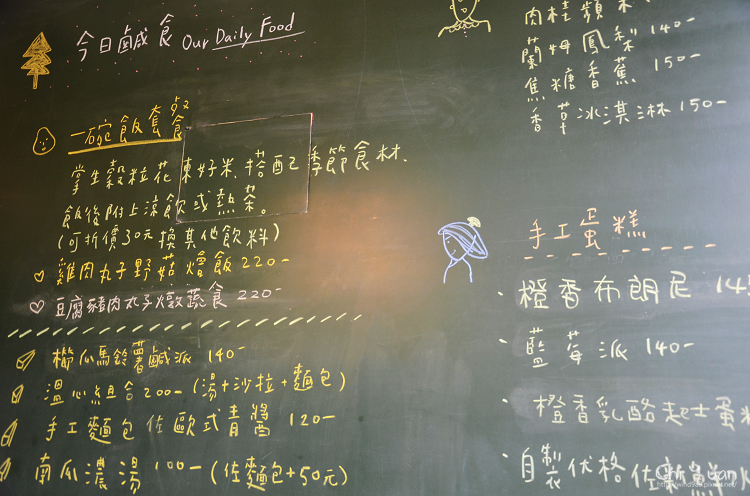 今日鹹食 Our Daily Food
一碗飯套餐
掌生穀粒花東好米.搭配季節食材.
飯後附上涼飲或熱茶。
(可折價30元換其他飲料)
♡ 雞肉丸子野菇燴飯 220-
♡ 豆腐豬肉丸子燉蔬食 220-
櫛瓜馬鈴薯鹹派 140-
溫心組合 200-(湯+沙拉+麵包)
手工麵包佐歐式青醬 120-
南瓜濃湯 100-(佐麵包+50元)
肉桂蘋
蘭姆鳳梨 140-
焦糖香蕉 150-
香草冰淇淋 150-
手工蛋糕
·橙香布朗尼 145
·藍莓派 140-
·橙香乳酪起士蛋糕
·自製優格佐新鮮